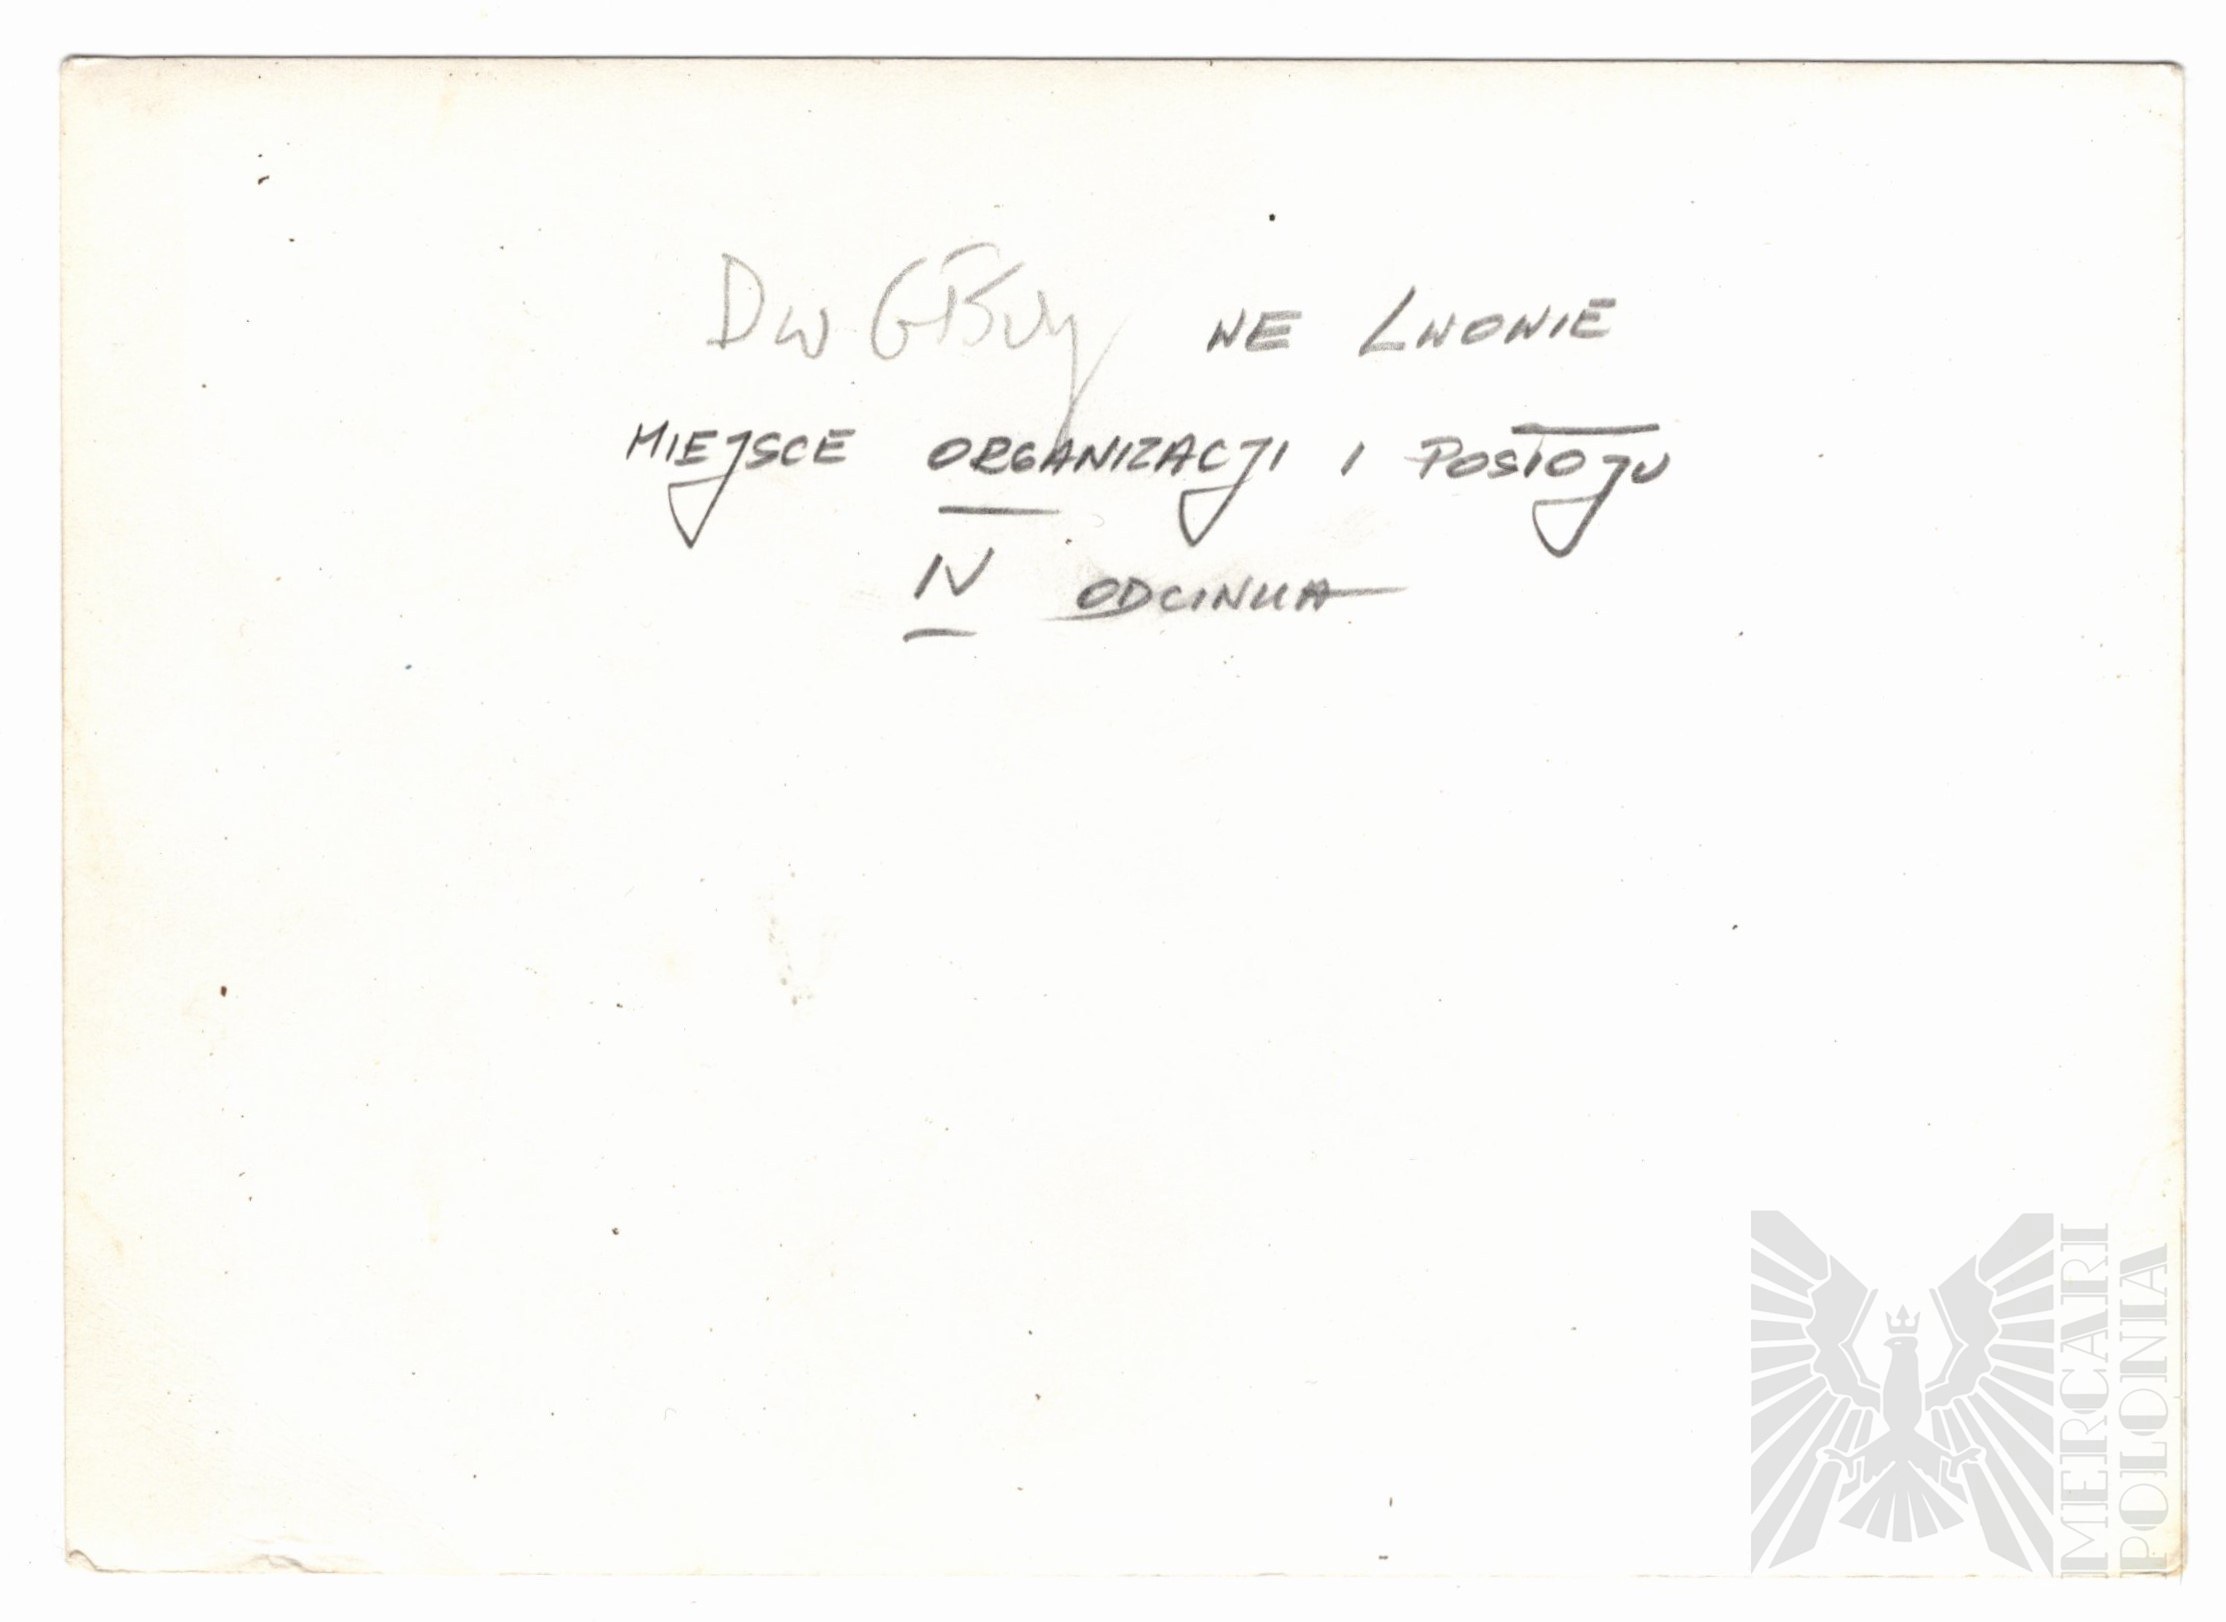 Dw Gł­wy WE LWOWIE
MIEJSCE ORGANIZACJI I POSTOJU
IV ODCINKA
MERCARI
POLONIA